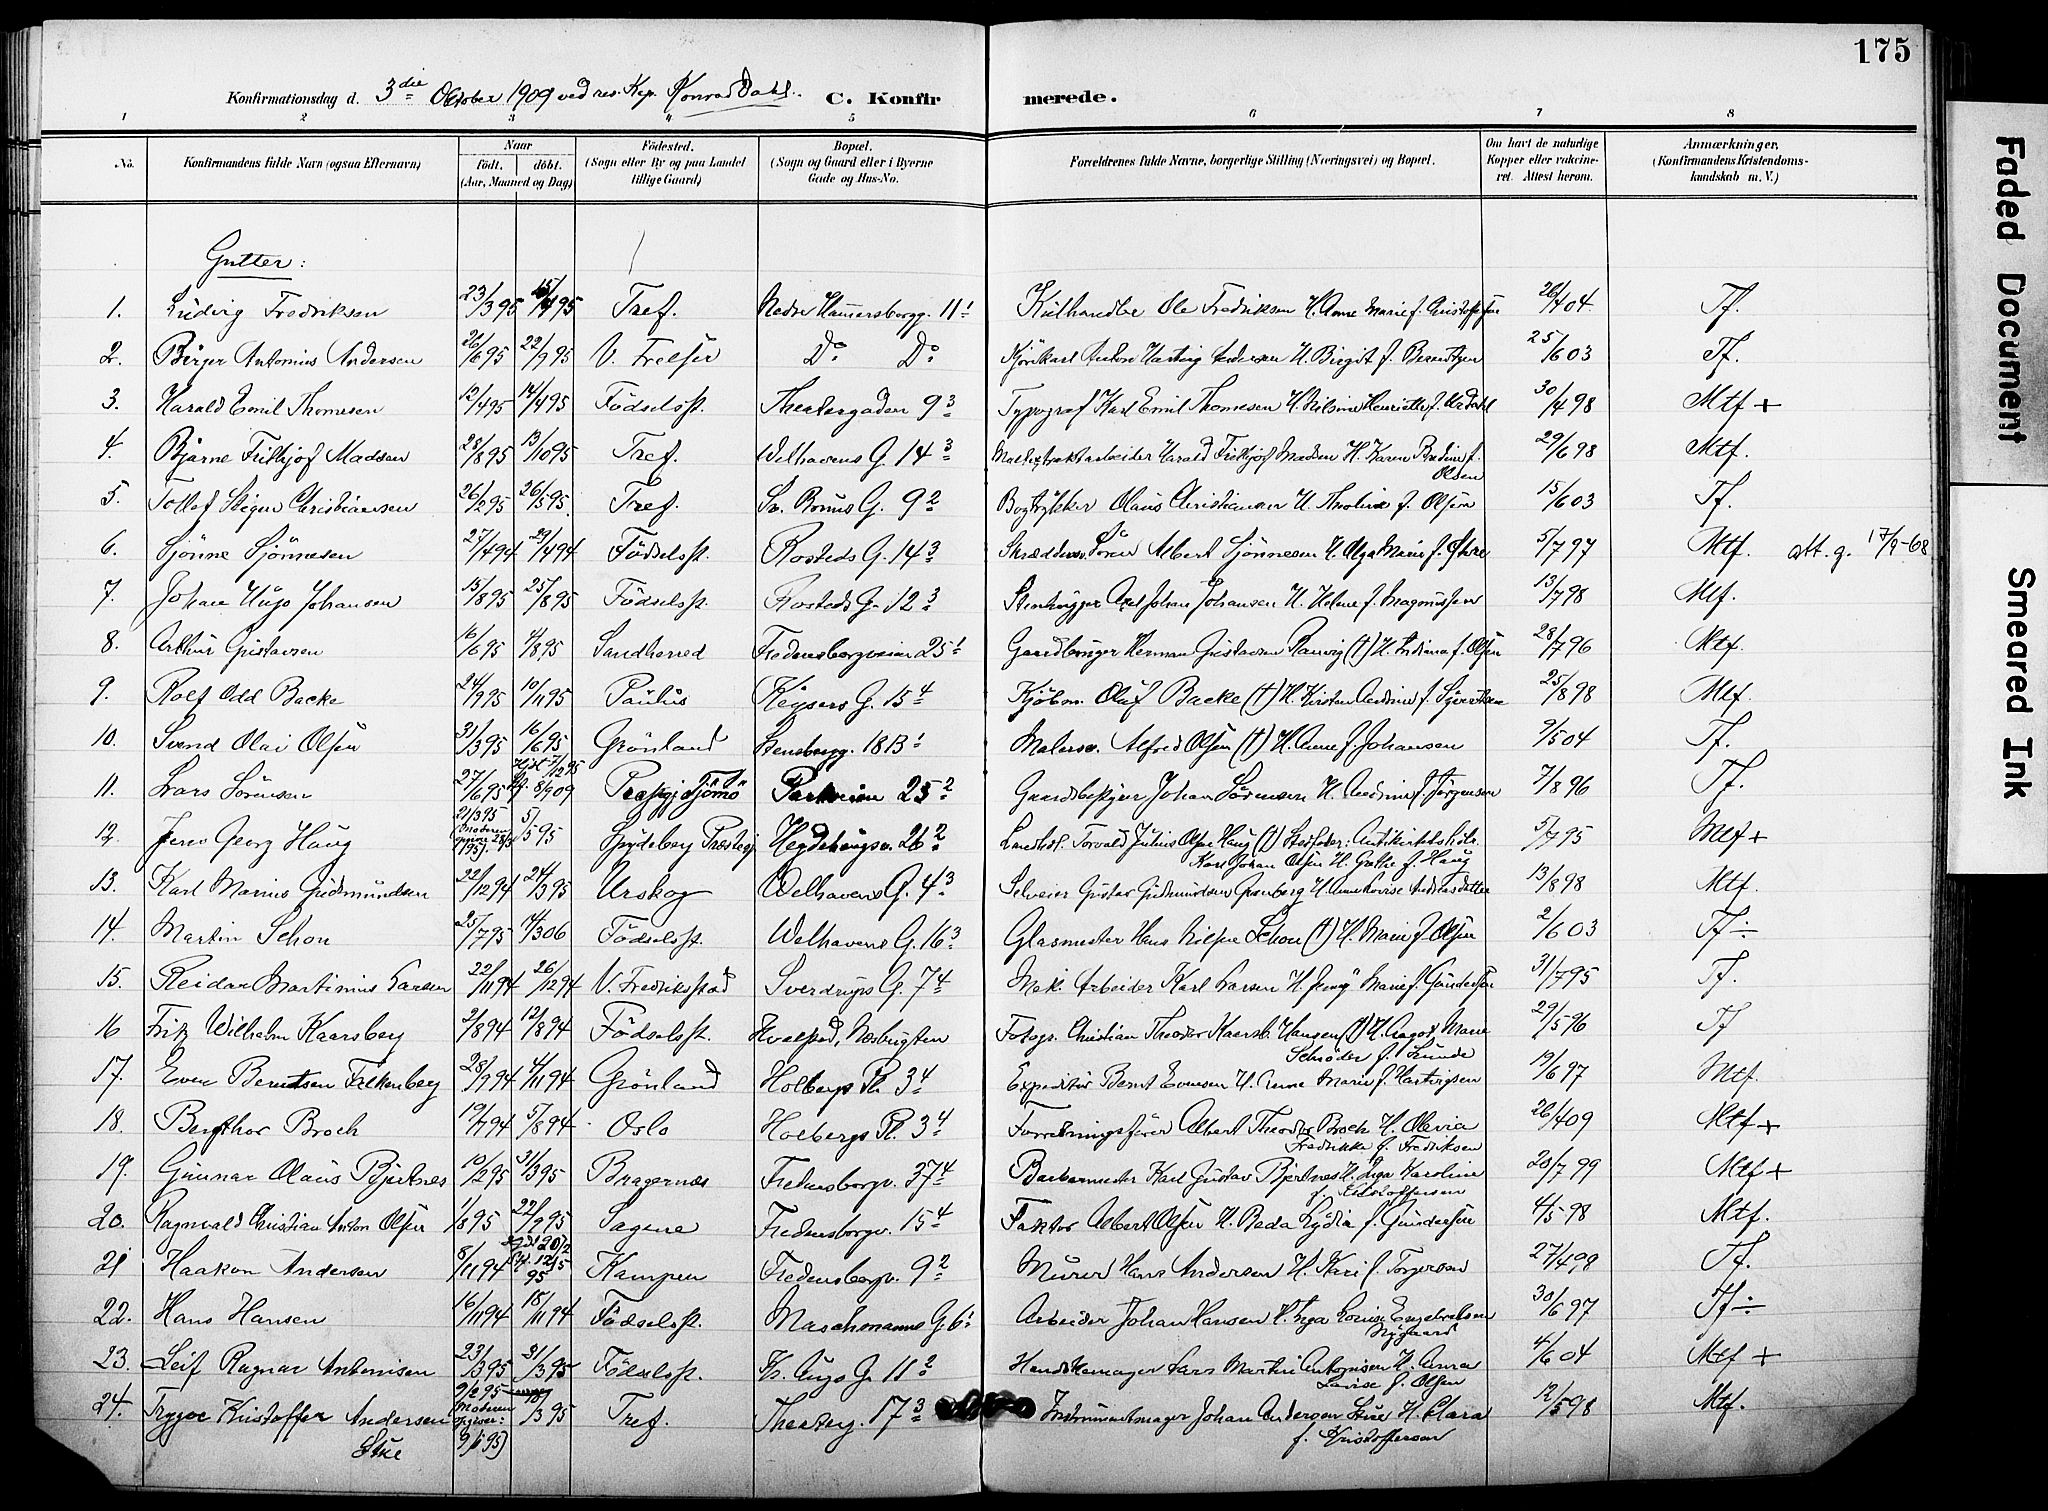 175
Konfirmationsdag d. 3die Oktober 1909 ved res. Kap. Konrad Dahl. C. Konfirmerede.
1 2 3 4 5 6 7 8
No. Konfirmandens fulde Navn (ogsaa Efternavn) Naar født. døbt. (Aar, Maaned og Dag) Fødested. (Sogn eller By og paa Landet tillige Gaard) Bopæl. (Sogn og Gaard eller i Byerne Gade og Hus-No. Forældrenes fulde Navne, borgerlige Stilling (Næringsvei) og Bopæl. Om havt de naturlige Kopper eller vakcineret. Attest herom. Anmærkninger, (Konfirmandens Kristendomskundskab m. V.)
Gutter:
1. Ludvig Fredriksen 23/3 95 15/4 95 Tref. Nedre Hamersborgg. 11 1 Kulhandler Ole Fredriksen H. Anne Marie f. 26/4 04. Tf.
2. Birger Antonius Andersen 26/6 95 22/9 95 V. Frelser Do Do Kjørekarl Anton Andersen H. Birgit f. 25/6 03 Tf.
3. Harald Emil Thomesen 12/4 95 14/4 95 Fødselsst. Theatergaden 9 3 Typograf Karl Emil Thomesen H. Henriette f. 30/4 98 Mtf +
4. Bjarne Fritkjof Madsen 28/8 95 13/10 95 Tref. Welhavens G. 14 3 Maltextraktarbeider Harald Fritkjof Madsen H. Karen f. Olsen 29/6 98 Mtf.
5. Christiansen 26/2 95 26/5 95. Tref. Sv. Bruns G. 9 2 Bogtrykker Olaus Christiansen H. Tholine f. Olsen 15/6 03 Tf.
6. Sjønne Sjønnesen 27/4 94 29/4 94 Fødselsst. Rosteds G. 14 3 Skrædder Albert Sjønnesen H. Olga Marie f. 5/7 97 Mtf. att. g. 17/9-68
7. Johan Hugo Johansen 15/8 95 25/8 95 Fødselsst. Rosteds G. 12 3 Stenhugger Axel Johan Johansen H. Helene f. Magnussen 13/7 98 Mtf.
8. Arthur Gustavsen 16/6 95 4/8 95 Sandherred Fredensborgveien 25 1 Gaardbruger Herman Gustavsen (†) H. Indiana f. Olsen 28/7 96 Mtf.
9. Rolf Odd Backe 24/9 95 10/11 95 Paulus Keysers G. 15 4 Kjøbm. Olaf Backe (†) H. Kirsten f. 25/8 98 Mtf.
10. Svend Olai Olsen 31/3 95 16/6 95 Grønland Stensbergg. 18 B 1 Malersv. Alfred Olsen (†) H. Anne f. Johansen 9/5 04 Tf.
11. Lars Sørensen 27/6 95 Hjdt. 7/12 95 8/9 09 Tjømø Parkveien 25 2 Gaardsbestyrer Johan Sørensen H. Andrine f. Jørgensen 7/8 96 Tf.
12. Jens Georg Haug 21/3 95 5/5 95 Spydeberg Præstegj Hegdehaugsv. 26 2 Landh. Torvald Julius Olsen Haug (†) Stedfader: Karl Johan Olsen H. Grethe f. Haug 5/7 95 Mtf +
13. Karl Marius Gudmundsen 22/12 94 24/3 95 Urskog Welhavens G. 4 3 Selveier Gustav Gudmundsen H. Anne Lovise Andreasdatter 13/8 98 Mtf.
14. Martin Schou 25/7 95 4/3 06 Fødselsst. Welhavens G. 16 3 Glasmester Hans Nilsen Schou (†) H. Marie f. Olsen 2/6 03 Tf ÷
15. Reidar Martinius Larsen 22/11 94 26/12 94 V. Fredriksstad Sverdrups G. 7 4 Mek. Arbeider Karl Larsen H. Jenny Marie f. Gundersen 31/7 95 Tf.
16 Fritz Wilhelm Kaarsberg 2/8 94 12/8 94 Fødselsst. Hvalstad, Næsbugten Fotogr. Christian Theodor Kaarsb. Hansen (†) H. Aagot Marie Schrøder f. Lunde 29/5 96 Tf
17. Even Berntsen Falkenberg 28/9 94 4/11 94 Grønland Holbergs Pl. 3 4 Expeditør Bernt Evensen H. Anne Marie f. Hartvigsen 19/6 97 Mtf.
18. Bergthor Broch 19/7 94 5/8 94 Oslo Holbergs Pl. 3 4 Forretningsfører Albert Theodor Broch H. Olevia Fredrikke f. Fredriksen 26/4 09 Mtf +
19. Gunnar Olaus Bjertnes 10/2 95 31/3 95 Bragernæs Fredensborgv. 37 4 Barbermester Karl Gustav Bjertnes H. Inga Karoline f. Kristoffersen 20/7 99 Mtf +
20. Ragnvald Christian Anton Olsen 1/8 95 22/9 95 Sagene Fredensborgv. 15 4 Faktor Albert Olsen H. Beda Lydia f. Gundersen 4/5 98 Mtf.
21 Haakon Andersen 8/11 94 12/5 95 Kampen Fredensborgv. 9 2 Murer Hans Andersen H. Kari f. Torgersen 27/4 98 Tf.
22. Hans Hansen 16/11 94 18/11 94 Fødselsst. Maschmanns G. 6 1 Arbeider Johan Hansen H. Inga Louise Engebretsen Nygaard 30/6 97 Tf ÷
23. Leif Ragnar Antonisen 23/3 95 31/3 95 Fødselsst. Kr. Augs G. 11 2 Handskemager Lars Martin Antonisen H. Anna Lovise f. Olsen 4/6 04 Mtf +
24. Trygve Kristoffer Andersen Stue 9/2 95 (Moderen opgiver: 9/1 95) 10/3 95 Tref. Theaterg. 17 3 Instrumentmager Johan Andersen Stue H. Clara f. Kristoffersen 12/5 98 Mtf.
Faded Document
Smeared Ink